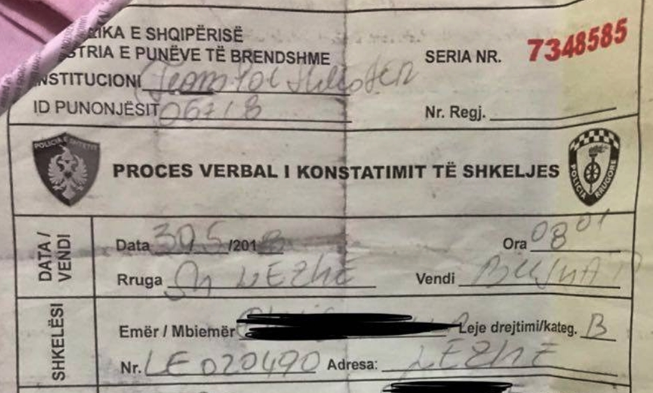 IKA E SHQIPËRISË
STRIA E PUNËVE TË BRENDSHME
SERIA NR. 7348585
INSTITUCIONI
ID PUNONJËSIT 0671B
Nr. Regj.
POLICIA E SHTETIT
PROCES VERBAL I KONSTATIMIT TË SHKELJES
POLICIA RRUGORE
DATA / VENDI
Data 30.5 /2018
Ora 08 01
Rruga SH LEZHE
Vendi
SHKELËSI
Emër / Mbiemër
Leje drejtimi/kateg. B
Nr. LE020490 Adresa: LEZHE